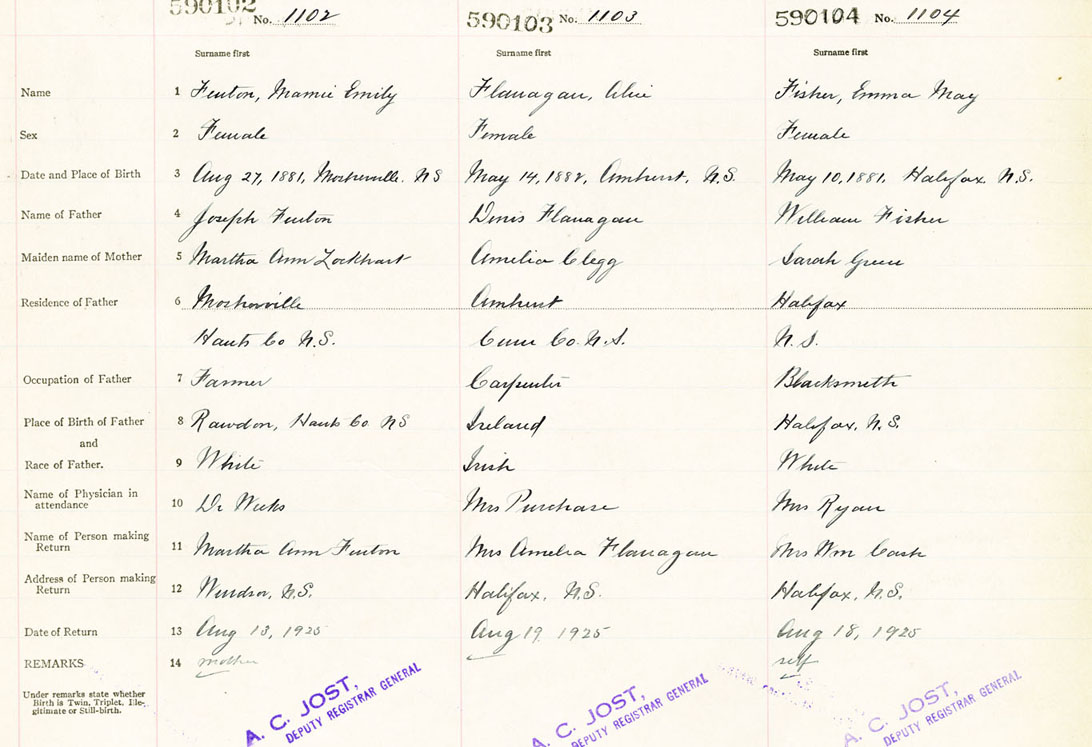 590102 No. 1102 590103 No. 1103 590104 No. 1104
Surname first Surname first Surname first
Name 1 Fenton, Mamie Emily Flanagan, Alice Fisher, Emma May
Sex 2 Female Female Female
Date and Place of Birth 3 Aug 27, 1881, Mosherville. NS May 14, 1888, Amherst, N.S. May 10, 1881, Halifax. N.S.
Name of Father 4 Joseph Fenton Denis Flanagan William Fisher
Maiden name of Mother 5 Martha Ann Lockhart Amelia Clegg Sarah Green
Residence of Father 6 Mosherville Amherst Halifax
Hants Co N.S. Cum Co. N.S. N.S.
Occupation of Father 7 Farmer Carpenter Blacksmith
Place of Birth of Father 8 Rawdon, Hants Co NS Ireland Halifax, N.S.
and
Race of Father. 9 White Irish White
Name of Physician in
attendance 10 Dr Weeks Mrs Purchase Mrs Ryan
Name of Person making
Return 11 Martha Ann Fenton Mrs Amelia Flanagan Mrs Wm Cash
Address of Person making
Return 12 Windsor, N.S. Halifax, N.S. Halifax, N.S.
Date of Return 13 Aug 13, 1925 Aug 19 1925 Aug 18, 1925
REMARKS 14 mother self
Under remarks state whether
Birth is Twin, Triplet, Ille-
gitimate or Still-birth.
A. C. JOST, A. C. JOST, A. C. JOST,
DEPUTY REGISTRAR GENERAL DEPUTY REGISTRAR GENERAL DEPUTY REGISTRAR GENERAL